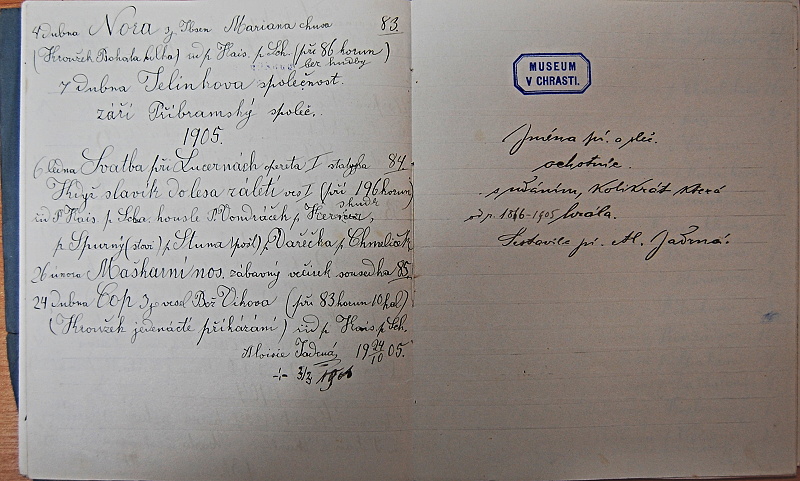 4 dubna Nora 3j Ibsen Mariana chuva 83.
(Kroužek Bohatá holka) iid p. Hais. p. Sch. (při 86 korun)
bez hudby
7 dubna Jelínkova společnost.
září Příbramský společ.
1905.
6 ledna Svatba při Lucernách opereta I statyka 84.
Když slavík do lesa zaletí ves I (při 196 korun)
iid p Hais p. Scha. housle P. Vondráček p.
p. Spurný (sloví) p. Stuna (pošt) p. Dařečka p. Chmelíček
26 února Maškarní nos. zábavný večírek sousedka 85.
24 dubna Cop 3j vesel Bož Viková (při 83 korun 10 hal)
(Kroužek jedenácté přikázání) iid p. Hais. p. Sch.
Aloisie Jadrná 19 24/10 05.
+ 3/3 1906
MUSEUM
V CHRASTI.
Jména pí. a sleč.
ochotnic.
s udáním, kolikrát která
od r. 1866-1905 hrála.
Sestavila pí. Al. Jadrná.